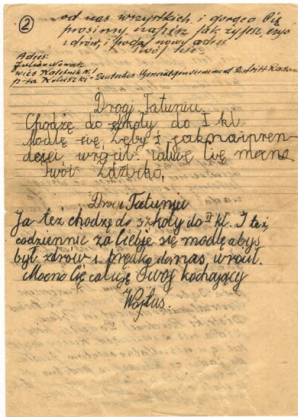 2
od nas wszystkich i gorąco Cię
prosimy, napisz jak żyjesz, czyś
zdrów, i podaj nowy adres
Twój
Adres
wieś
p-ta
Drogi Tatuniu
Chodzę do szkoły do I kl.
Modlę się, żebyś jak najpren-
dzej wrócił. całuję Cię mocno
twój Zdzicho,
Drogi Tatuniu
Ja też chodzę do szkoły do II kl. I też
codziennie za Ciebie się modlę abyś
był zdrów i prędko do nas, wrócił.
Mocno Cię całuję Twój kochający
Wojtuś.